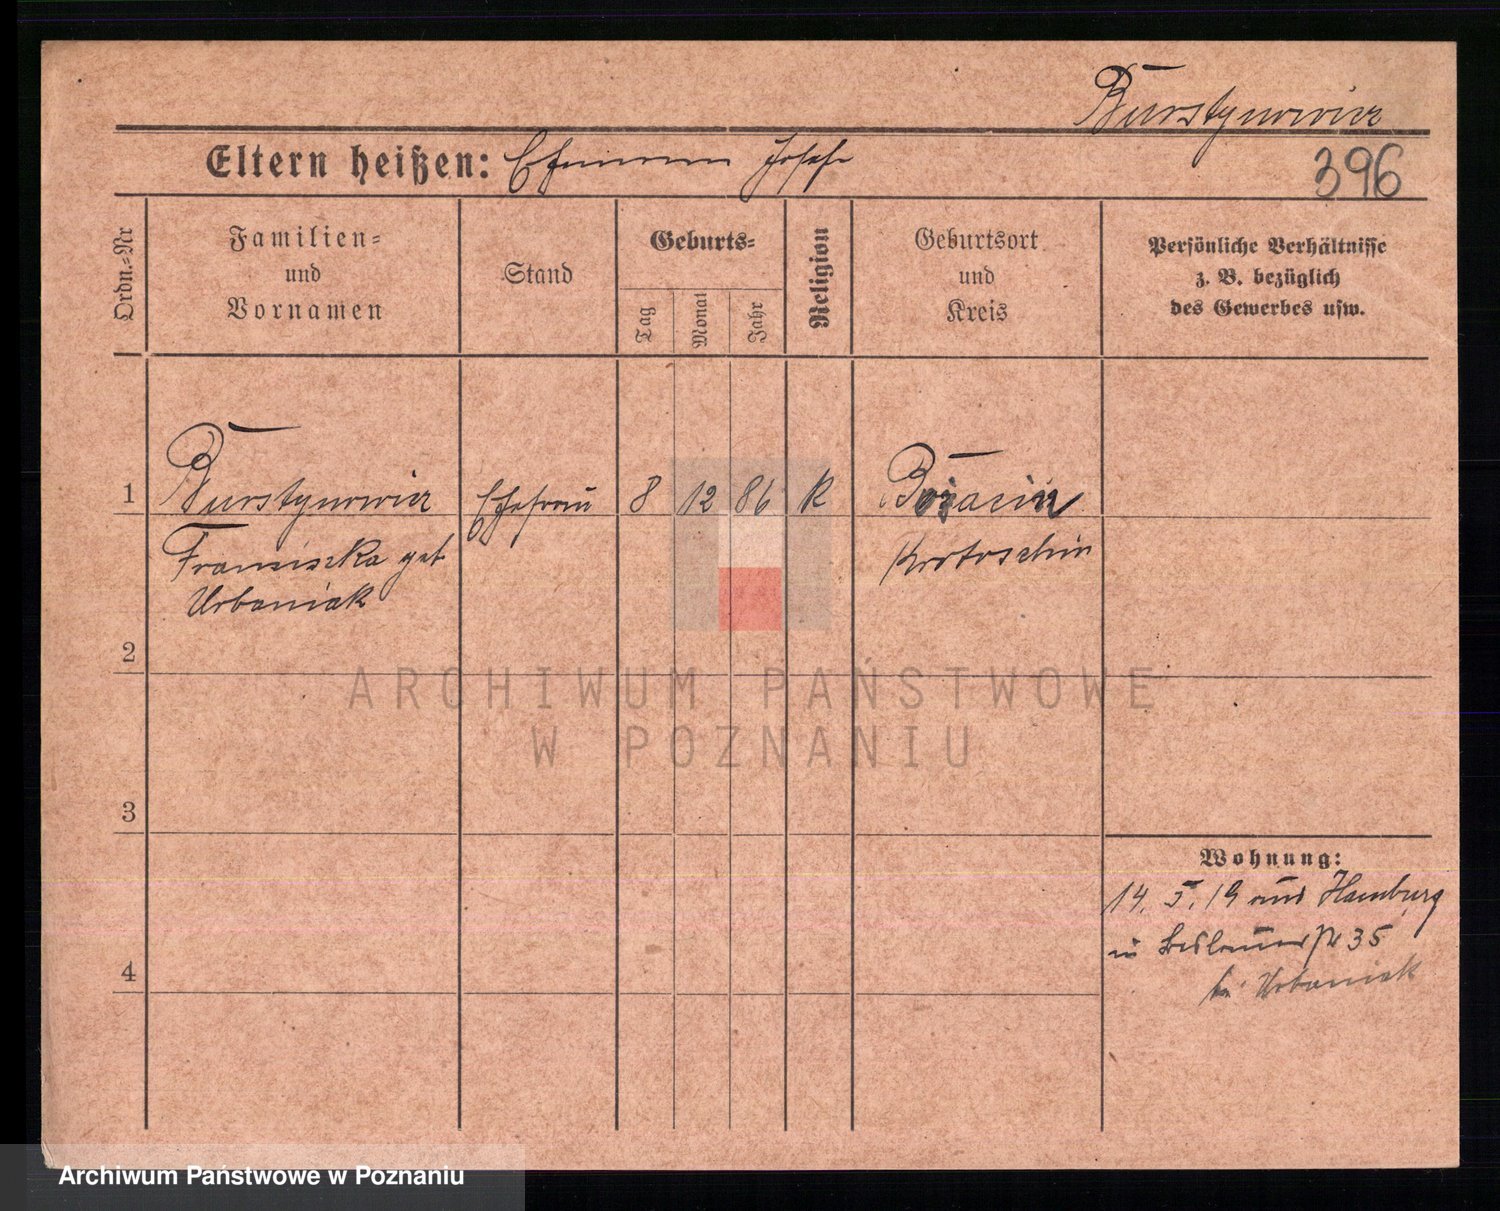 Burstynowicz
Eltern heißen: Ehemann Josef
396
Ordn.-Nr
Familien-
und
Vornamen
Stand
Geburts-
Tag
Monat
Jahr
Religion
Geburtsort
und
Kreis
Persönliche Verhältnisse
z. B. bezüglich
des Gewerbes usw.
1 Burstynowicz Ehefrau 8 12 86 K Bożacin
Franziszka geb
Urbaniak
Krotoschin
2
3
4
Wohnung:
14. 5. 19 aus Hamburg
in 35
bei Urbaniak
ARCHIWUM PAŃSTWOWE
W POZNANIU
Archiwum Państwowe w Poznaniu